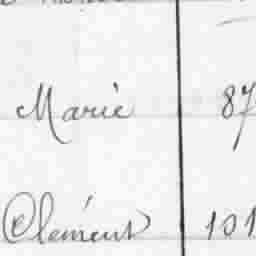 Marie 87
Clément 101